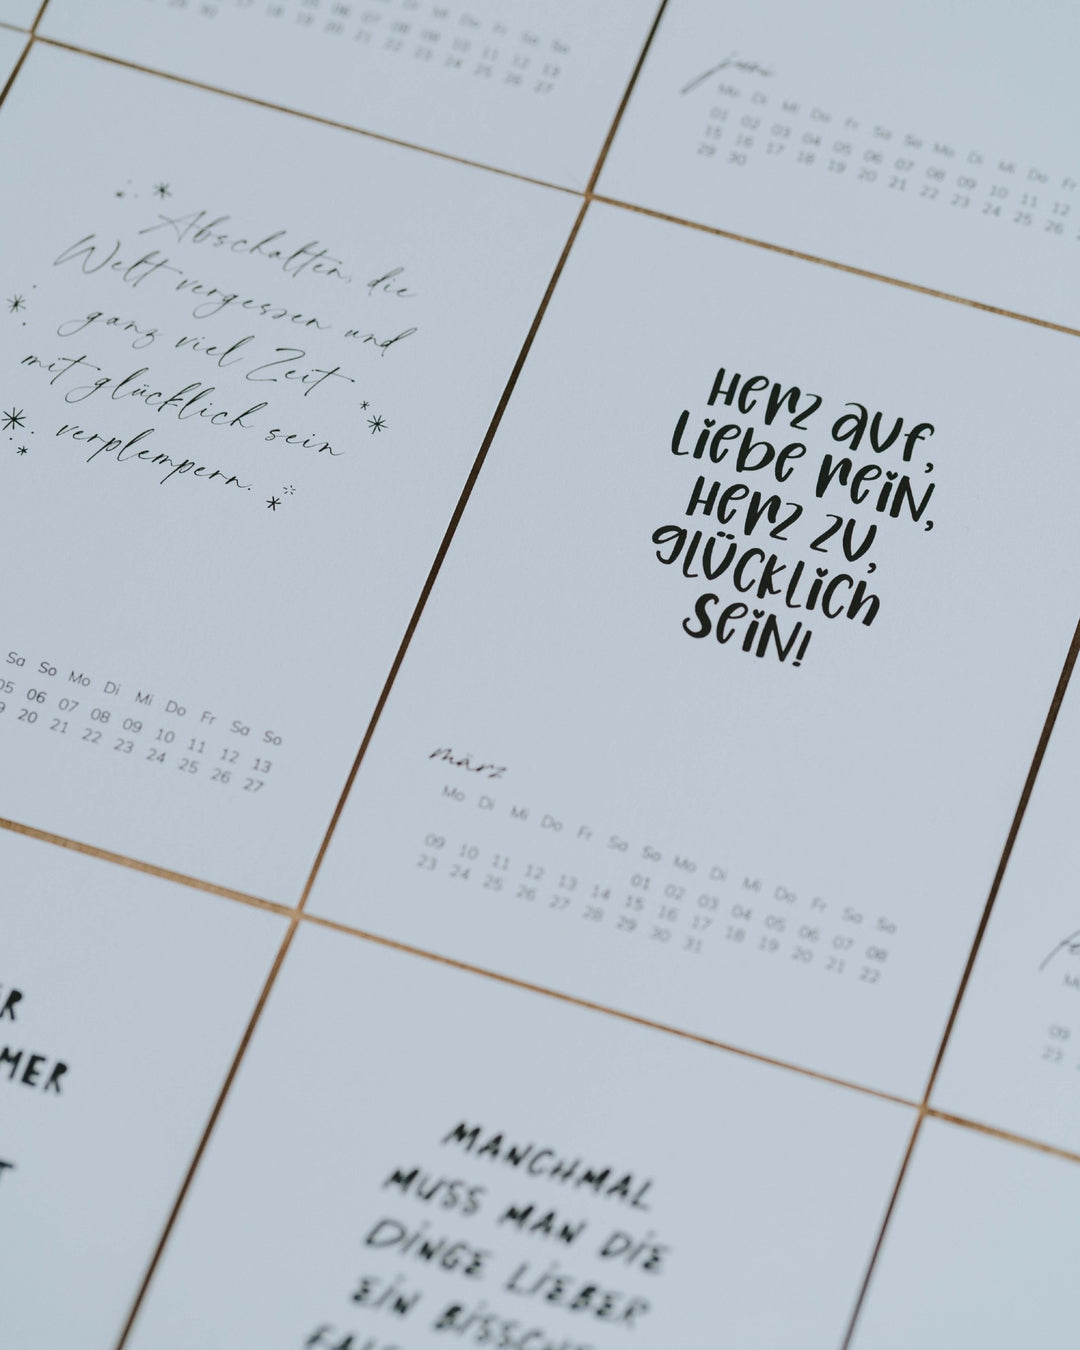 28 29 30
Fr Sa So
05 06 07 08 09 10 11 12 13
21 22 23 24 25 26 27
juni
Mo Di Mi Do Fr Sa So Mo Di Mi Do Fr
01 02 03 04 05 06 07 08 09 10 11 12
15 16 17 18 19 20 21 22 23 24 25 26
29 30
Abschalten, die
Welt vergessen und
ganz viel Zeit
mit glücklich sein
verplempern.
Sa So Mo Di Mi Do Fr Sa So
05 06 07 08 09 10 11 12 13
20 21 22 23 24 25 26 27
Herz auf,
Liebe rein,
Herz zu,
glücklich
sein!
märz
Mo Di Mi Do Fr Sa So Mo Di Mi Do Fr Sa So
01 02 03 04 05 06 07 08
09 10 11 12 13 14 15 16 17 18 19 20 21 22
23 24 25 26 27 28 29 30 31
09
23
MANCHMAL
MUSS MAN DIE
DINGE LIEBER
EIN